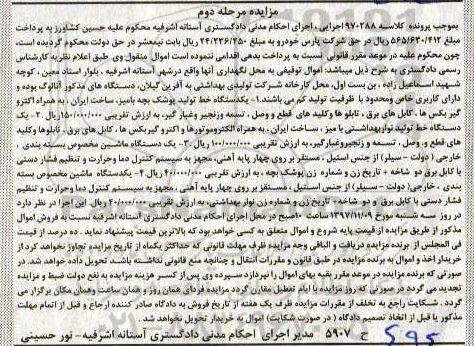 مزایده مرحله دوم
بموجب پرونده کلاسه ۹۷۰۲۸۸ اجرایی ، اجرای احکام مدنی دادگستری آستانه اشرفیه محکوم علیه حسین کشاورز به پرداخت
مبلغ ۵۶۵/۶۳۰/۴۱۲ ریال در حق شرکت پارس خودرو به مبلغ ۲۴/۲۳۶/۴۵۰ ریال بابت نیمعشر در حق دولت محکوم گردیده است،
چون محکوم علیه در موعد مقرر قانونی نسبت به پرداخت بدهی اقدامی ننموده است اموال منقول وی طبق اعلام نظریه کارشناس
رسمی دادگستری به شرح ذیل میباشد: اموال توقیفی به محل نگهداری آنها واقع درشهر آستانه اشرفیه ، بلوار استاد معین ، کوچه
شهید اسماعیل زاده ، بن بست اول، محل کارخانه شرکت تولیدی بهداشتی به آفرین گیلان، دستگاه های مذکور آنالوگ بوده و
دارای کاربری خاص ومحدود با ظرفیت تولید کم می باشند.۱- یکدستگاه خط تولید پوشک بچه بامیز، ساخت ایران ، به همراه اکترو
گیر بکس ها ، کابل های برق ، تابلو ها وکلید های قطع و وصل ، تسمه وزنجیر وغبار گیر، به ارزش تقریبی ۱۵۰/۰۰۰/۰۰۰ ریال .۲- یک
دستگاه خط تولید نواربهداشتی با میز ، ساخت ایران ، به همراه الکتروموتورها و اکترو گیربکس ها ، کابل های برق ، تابلوها وکلید
های قطع و، وصل ، تسمه و زنجیروغبارگیر، به ارزش تقریبی ۱۰۰/۰۰۰/۰۰۰ ریال.۳- یک دستگاه ماشین مخصوص بسته بندی ،
خارجی ( دولت - سیلر) از جنس استیل ، مستقر بر روی چهار پایه آهنی، مجهز به سیستم کنترل دما وحرارت و تنظیم فشار دستی
با کابل برق دو شاخه + تاریخ زن و شماره زن پوشک بچه ، به ارزش تقریبی ۴۰/۰۰۰/۰۰۰ ریال ۴- یکدستگاه ماشین مخصوص بسته
بندی ، خارجی( دولت - سیلر) از جنس استیل ، مستقر بر روی چهار پایه آهنی ، مجهز به سیستم کنترل دما وحرارت و تنظیم
فشار دستی با کابل برق و دو شاخه+ تاریخ زن و شماره زن نوار بهداشتی، به ارزش تقریبی ۲۰/۰۰۰/۰۰۰ ریال. این اجرا در نظر دارد
در روز سه شنبه مورخ ۱۳۹۷/۱۱/۰۹ ساعت ۱۰صبح در محل اجرای احکام مدنی دادگستری آستانه اشرفیه نسبت به فروش اموال
مذکور از طریق مزایده از قیمت پایه شروع و اموال متعلق به کسی خواهد بود که بالاترین قیمت پیشنهاد نماید . ده درصد از قیمت
فی المجلس از برنده مزایده دریافت و الباقی وجه مزایده ظرف مهلت قانونی که حداکثر یکماه از تاریخ مزایده تجاوز نخواهد کرد از
خریدار اخذ و اموال به برنده مزایده در طبق قانون و مقررات انتقال و چنانچه منع قانونی نداشته باشد، تحویل داده خواهد شد. در
صورتی که برنده مزایده در موعد مقرر بقیه بهای اموال را نپردازد سپرده وی پس از کسر هزینه مزایده به نفع دولت ضبط و مزایده
تجدید می گردد در صورتی که روز مزایده با ایام تعطیل مقارن گردد مزایده فردای همان روز و همان ساعت وهمان مکان برگزار می
گردد . شکایت راجع به تخلف از مقررات مزایده ظرف یک هفته از تاریخ فروش به دادگاه صادر کننده ارجاع و قبل از اتمام مهلت
مذکور یا قبل از اتخاذ تصمیم دادگاه ( در صورت شکایت) اموال به خریدار تحویل نخواهد شد.
ح ۵۹۰۷ مدیر اجرای احکام مدنی دادگستری آستانه اشرفیه - نور حسینی
۵۹۵